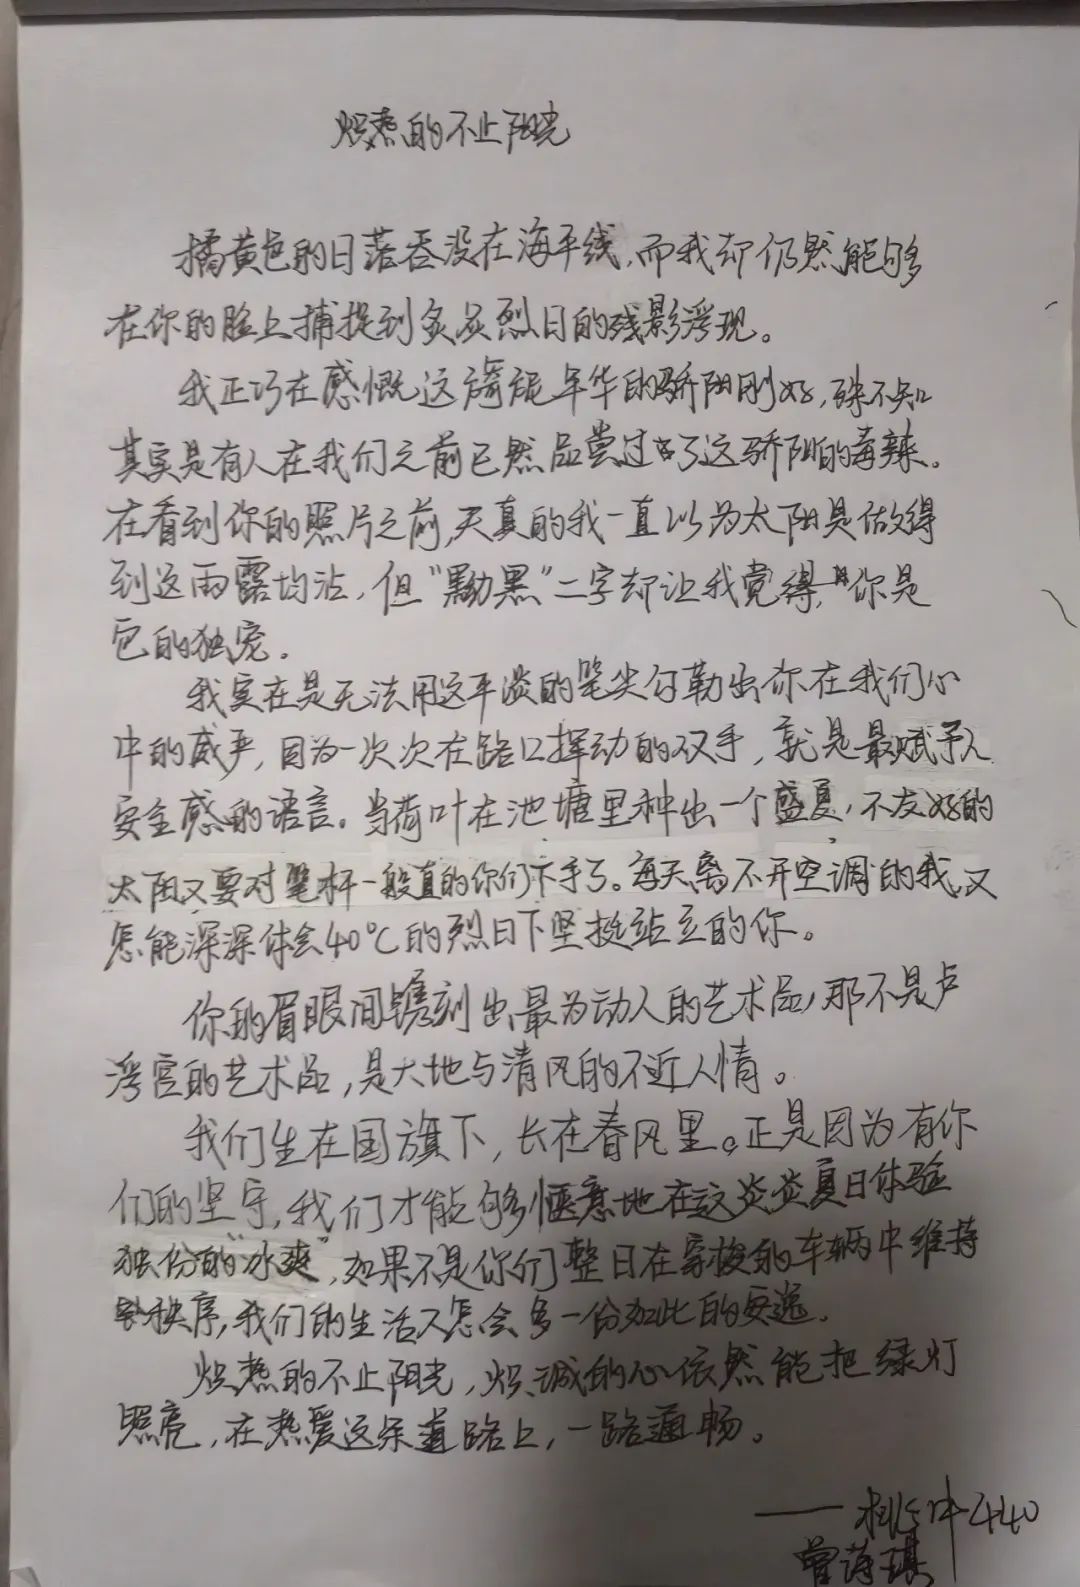 炽热的不止阳光
橘黄色的日落吞没在海平线,而我却仍然能够
在你的脸上捕捉到炙炎烈日的残影浮现。
我正巧在感慨这旖旎年华的骄阳刚好,殊不知
其实是有人在我们之前已然品尝过了这骄阳的毒辣。
在看到你的照片之前,天真的我一直以为太阳是做得
到这雨露均沾,但“黝黑”二字却让我觉得,你是
它的独宠。
我实在是无法用这平淡的笔尖勾勒出你在我们心
中的威严,因为一次次在路口挥动的双手,就是最赋予人
安全感的语言。当荷叶在池塘里种出一个盛夏,不友好的
太阳又要对笔杆一般直的你们下手了。每天离不开空调的我,又
怎能深深体会40℃的烈日下坚挺站立的你。
你的眉眼间镌刻出最为动人的艺术品,那不是卢
浮宫的艺术品,是大地与清风的不近人情。
我们生在国旗下,长在春风里。正是因为有你
们的坚守,我们才能够惬意地在这炎炎夏日体验
独份的“冰爽”,如果不是你们整日在穿梭的车辆中维持
秩序,我们的生活又怎会多一份如此的安逸。
炽热的不止阳光,炽诚的心依然能把绿灯
照亮,在热爱这条道路上,一路通畅。
——冲440
曾诗琪